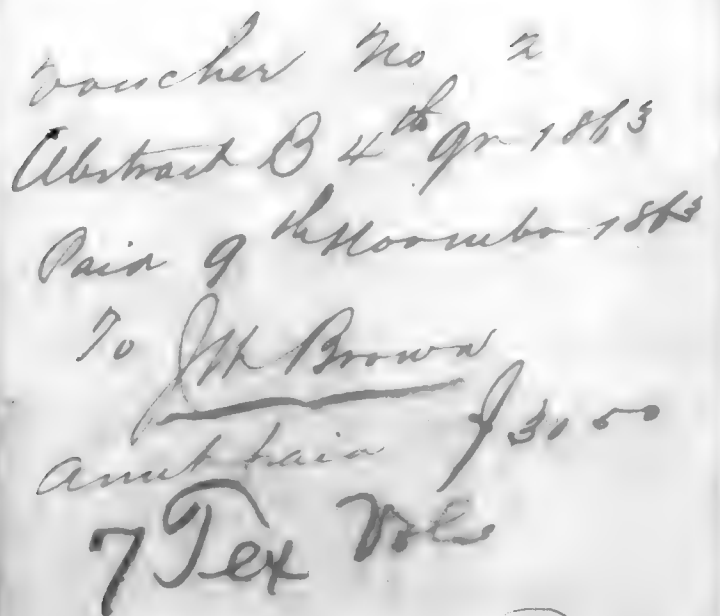 Voucher No 2
Abstract B 4th qr 1863
Paid 9th Novembr 1863
To J M Brown
Amt paid $30 50
7 Tex Vols